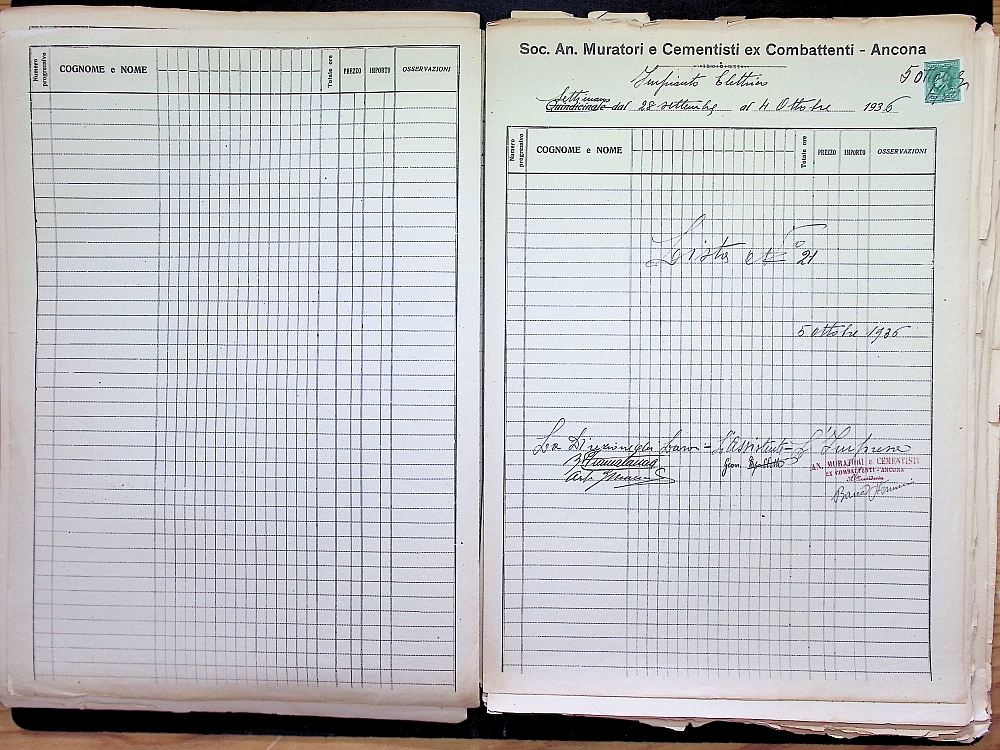 Numero progressivo COGNOME e NOME Totale ore PREZZO IMPORTO OSSERVAZIONI
Soc. An. Muratori e Cementisti ex Combattenti - Ancona
Impianto Elettrico
Settimana
Quindicinale dal 28 settembre al 4 Ottobre 1936
Numero progressivo COGNOME e NOME Totale ore PREZZO IMPORTO OSSERVAZIONI
Lista N° 21
5 Ottobre 1936
La Direzione dei Lavori - L'Assistente - L'Impresa
AN. MURATORI e CEMENTISTI
EX COMBATTENTI - ANCONA
Il Presidente